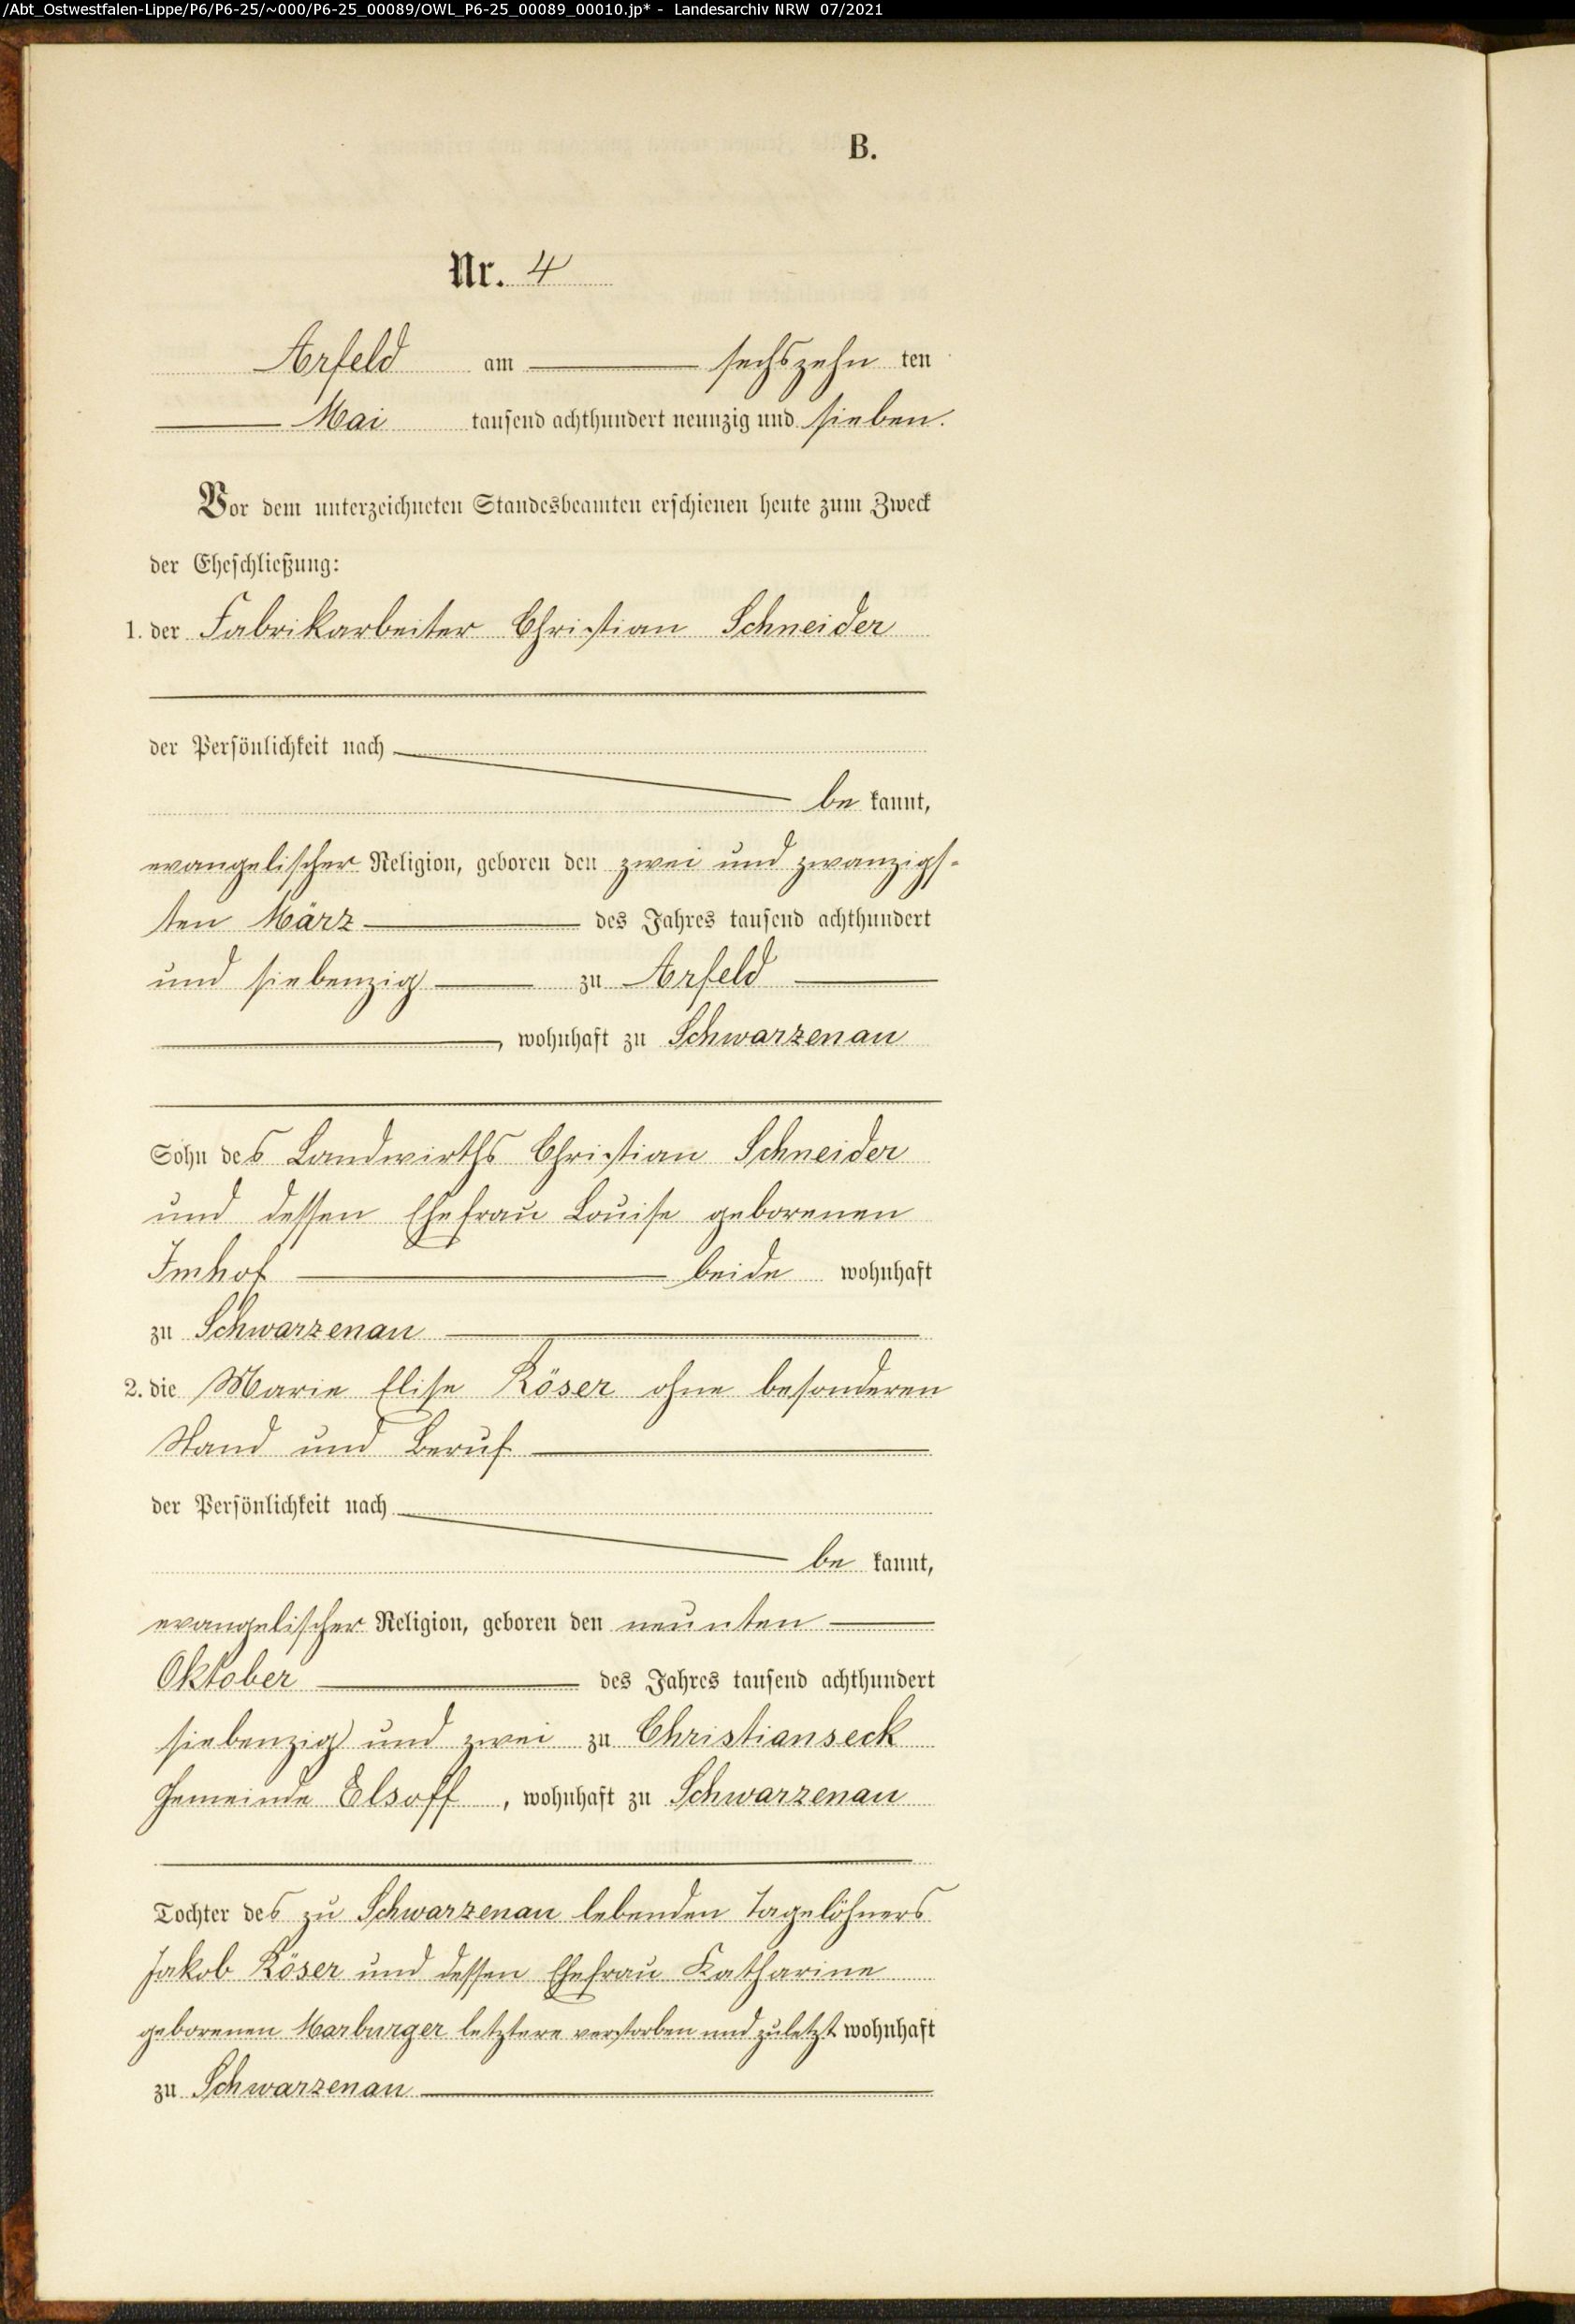 /Abt_Ostwestfalen-Lippe/P6/P6-25/~000/P6-25_00089/OWL_P6-25_00089_00010.jp* - Landesarchiv NRW 07/2021
B.
Nr. 4
Arfeld am sechszehn ten
Mai tausend achthundert neunzig und sieben.
Vor dem unterzeichneten Standesbeamten erschienen heute zum Zweck
der Eheschließung:
1. der Fabrikarbeiter Christian Schneider
der Persönlichkeit nach
be kannt,
evangelischer Religion, geboren den zwei und zwanzigs-
ten März des Jahres tausend achthundert
und siebenzig zu Arfeld
, wohnhaft zu Schwarzenau
Sohn des Landwirths Christian Schneider
und dessen Ehefrau Louise geborenen
Imhof beide wohnhaft
zu Schwarzenau
2. die Marie Elise Röser ohne besonderen
Stand und Beruf
der Persönlichkeit nach
be kannt,
evangelischer Religion, geboren den neunten
Oktober des Jahres tausend achthundert
siebenzig und zwei zu Christianseck
Gemeinde Elsoff, wohnhaft zu Schwarzenau
Tochter des zu Schwarzenau lebenden Tagelöhners
Jakob Röser und dessen Ehefrau Katharine
geborenen Marburger letztere verstorben und zuletzt wohnhaft
zu Schwarzenau